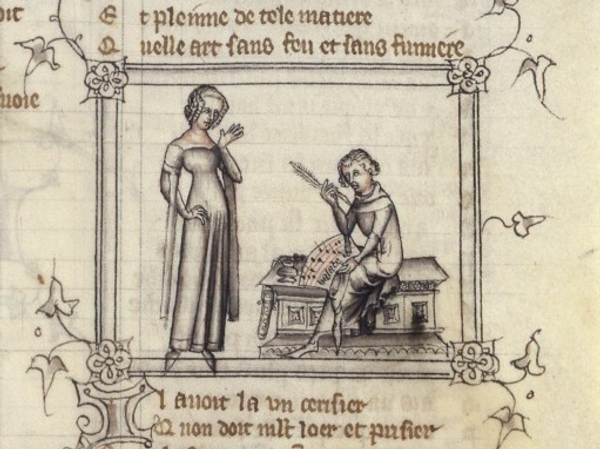 oit
E t pleinne de tele matiere
Q uelle art sans feu et sans fumiere
uoie
l auoit la vn cerisier
doit mlt loer et prisier